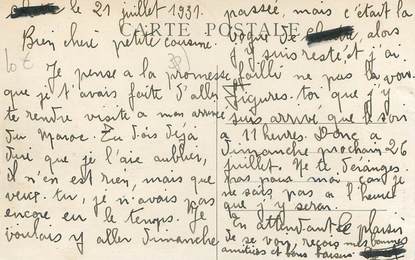 le 21 juillet 1931.
CARTE POSTALE
Bien chère petite cousine.
Je pense a la promesse
que je t'avais faite d'aller
te rendre visite a mon arrivée
du Maroc. Tu dois déjà
dire que je l'aie oublier,
il n'en est rien, mais que
veux-tu, je n'avais pas
encore eu le temps. Je
voulais y aller dimanche
passée, mais c'était la
vogue de alors
j'y suis resté et j'ai
failli ne pas la voir.
Figures-toi que j'y
suis arrivé que le soir
a 11 heures. Donc a
dimanche prochain 26
juillet. Ne te déranges
pas pour moi car je
ne sais pas a l'heure
que j'y serai.
En attendant le plaisir
de se voir, reçois mes bonnes
amitiés et bons baisers